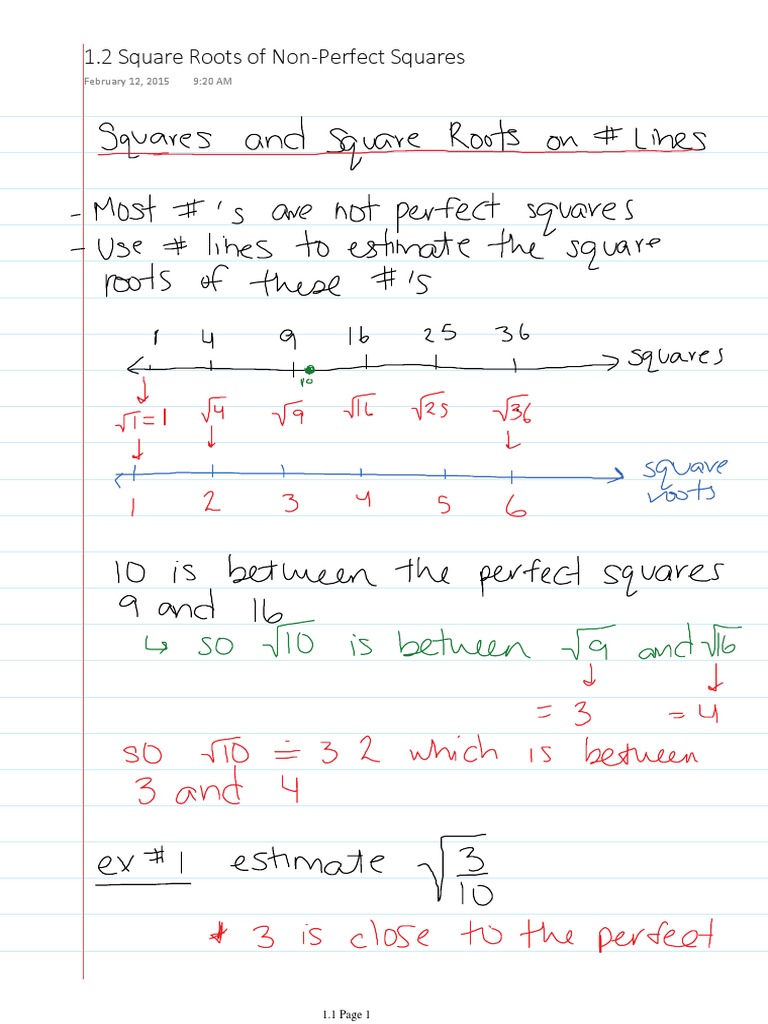 1.2 Square Roots of Non-Perfect Squares
February 12, 2015 9:20 AM
Squares and Square Roots on # Lines
- Most #'s are not perfect squares
- Use # lines to estimate the square
roots of these #'s
1 4 9 16 25 36
squares
10
√1=1 √4 √9 √16 √25 √36
square
roots
1 2 3 4 5 6
10 is between the perfect squares
9 and 16
↳ so √10 is between √9 and √16
= 3 = 4
so √10 ≐ 3 2 which is between
3 and 4
ex #1 estimate √(3/10)
* 3 is close to the perfect
1.1 Page 1